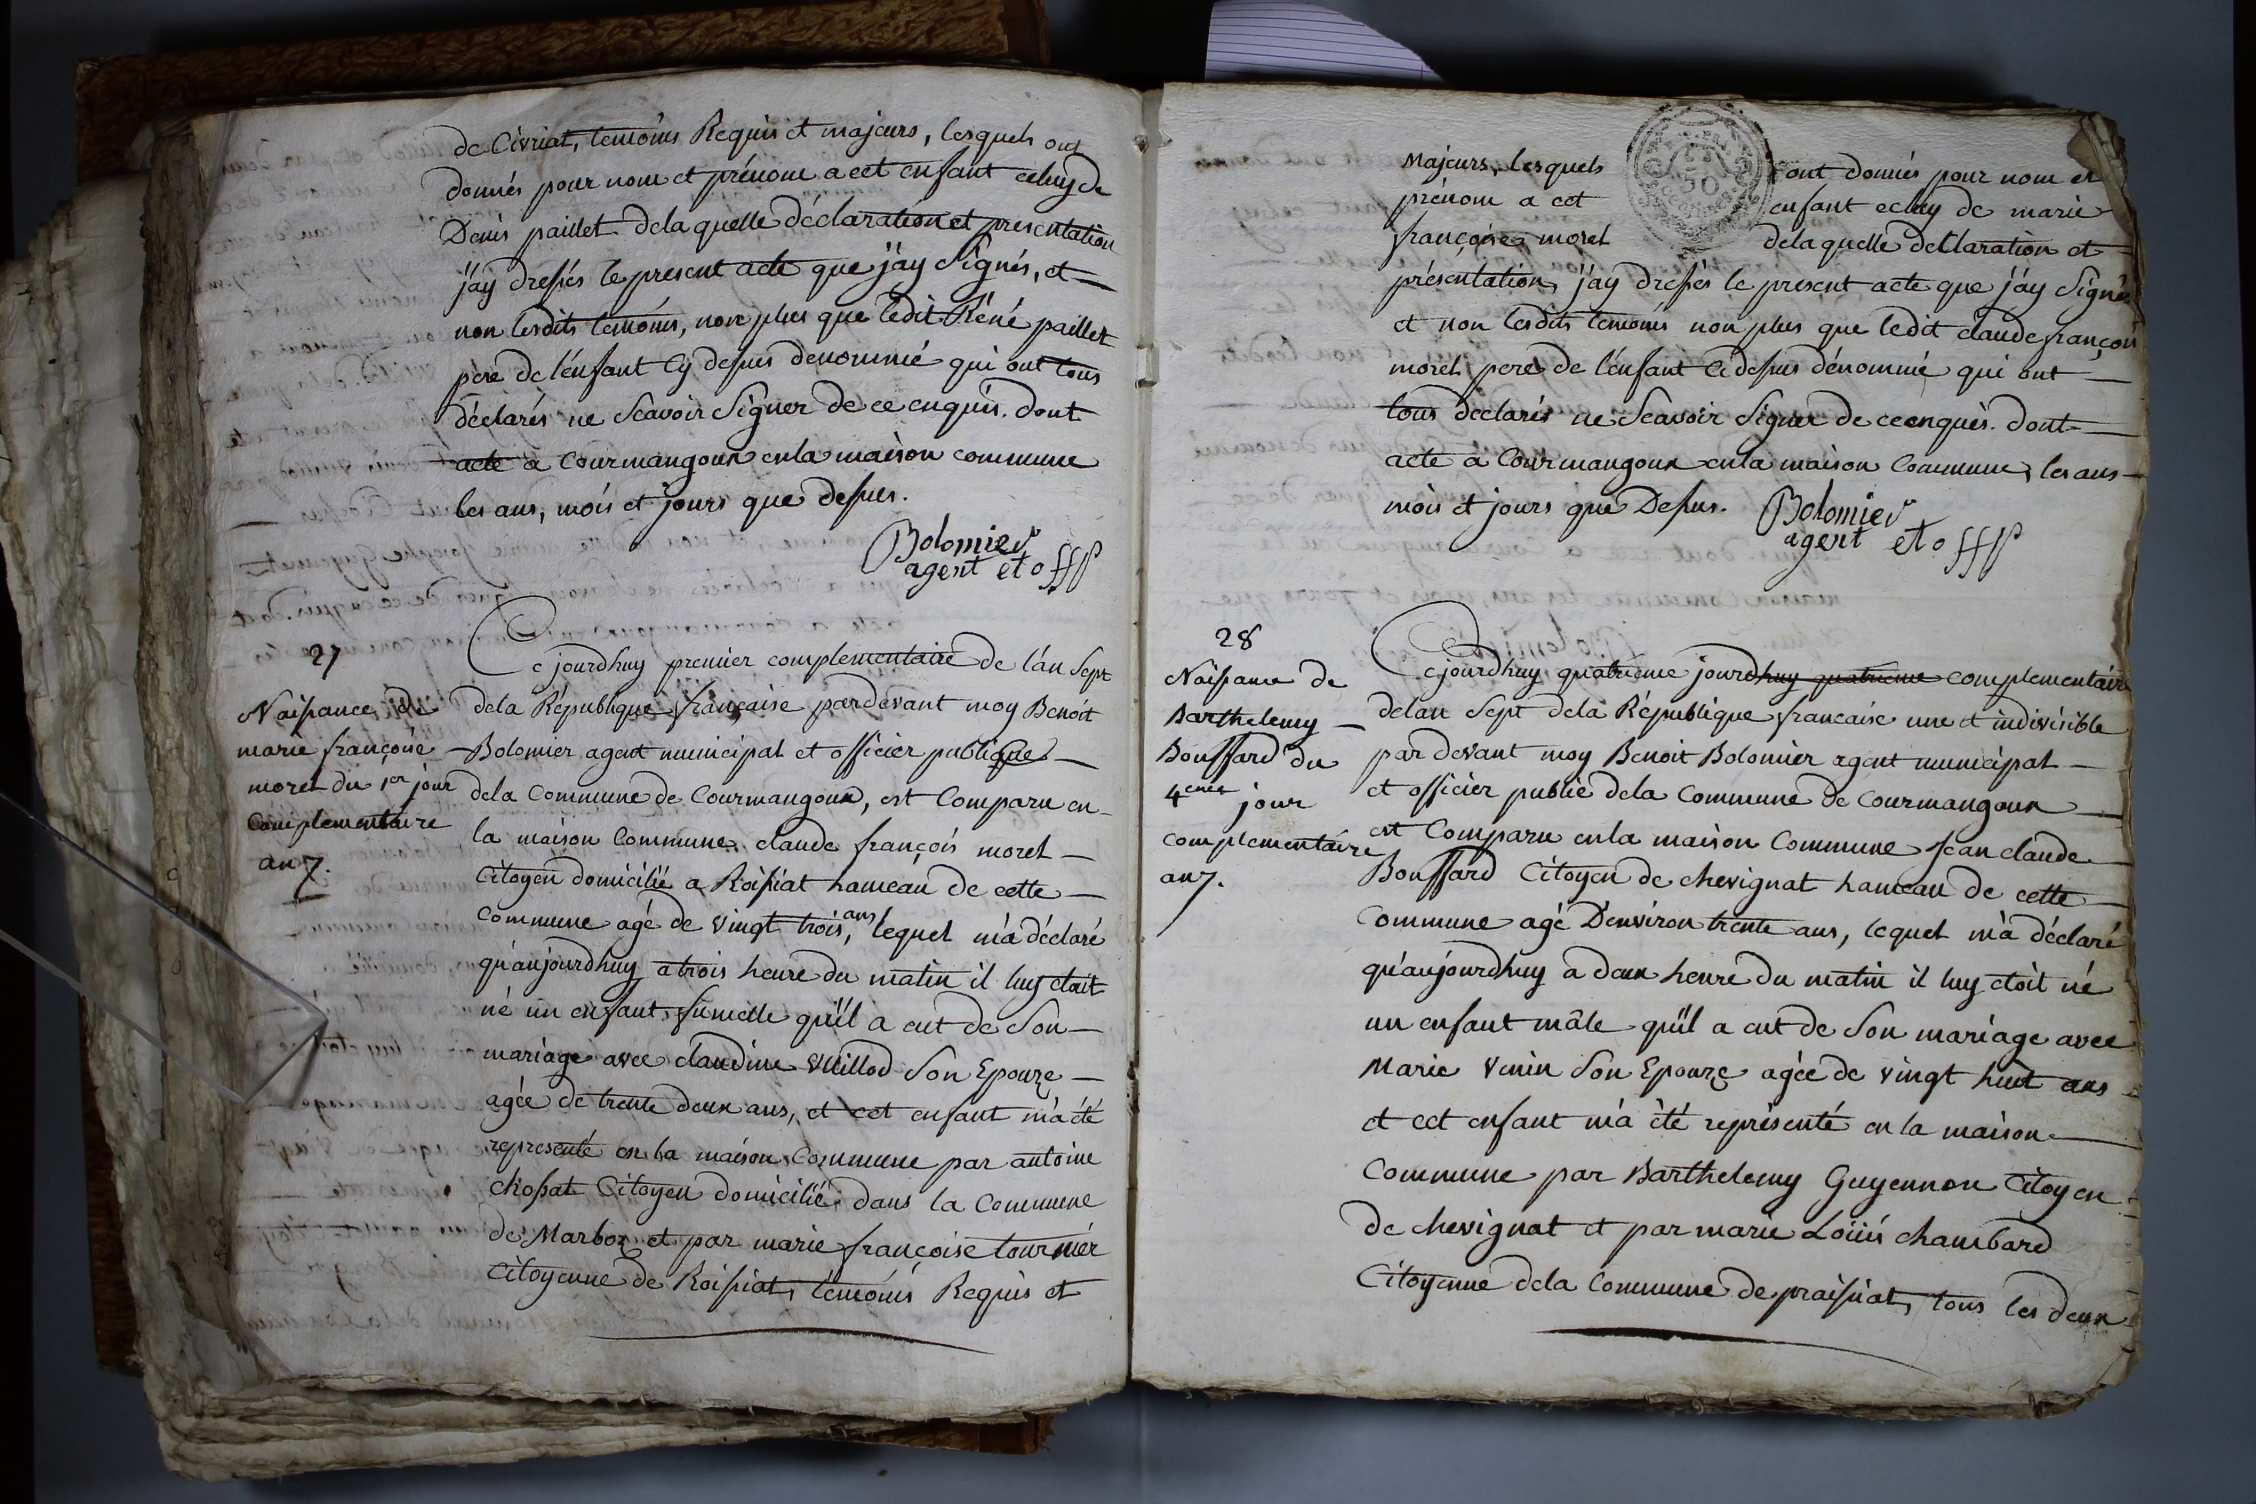 de Civriat, temoins Requis et majeurs, lesquels ont
donnés pour nom et prénom a cet enfant celuy de
Denis paillet de la quelle déclaration et presentation
j'ay dressés le present acte que j'ay Signés, et
non lesdits temoins, non plus que ledit Réné paillet
pere de l'enfant Cy dessus denommé qui ont tous
déclarés ne Scavoir Signer de ce enquis. dont
acte a Courmangoux en la maison commune
les ans, mois et jours que dessus.
Bolomier
agent et off p
27
Naissance de
marie françoise
morel du 1er jour
Complementaire
an 7.
Ce jourdhuy premier complementaire de l'an Sept
de la République française pardevant moy Benoit
Bolomier agent municipal et officier publique
de la Commune de Courmangoux, est Comparu en
la maison Commune claude françois morel
Citoyen domicilié a Roissiat hameau de cette
Commune agé de vingt trois ans, lequel m'a déclaré
qu'aujourdhuy a trois heure du matin il luy etait
né un enfant fumelle qu'il a eut de Son
mariage avec claudine vuillod Son Epouze
agée de trente deux ans, et cet enfant m'a été
representé en la maison Commune par antoine
chossat Citoyen domicilié dans la Commune
de Marboz et par marie françoise tournier
Citoyenne de Roissiat, temoins Requis et
50
Majeurs, lesquels ont donnés pour nom et
prénom a cet enfant celuy de marie
françoise morel de la quelle declaration et
présentation, j'ay dressés le present acte que j'ay Signés
et non lesdits temoins non plus que ledit claude françois
morel pere de l'enfant Ci dessus dénommé qui ont
tous declarés ne Scavoir Signer de ce enquis. dont
acte a Courmangoux en la maison Commune, les ans
mois et jours que Dessus.
Bolomier
agent et off p
28
Naissance de
Barthelemy
Bouffard du
4eme jour
complementaire
an 7.
Ce jourdhuy quatrieme jourdhuy quatrieme complementaire
de lan Sept de la République francaise une et indivisible
par devant moy Benoit Bolomier agent municipal
et officier public de la Commune de Courmangoux
est Comparu en la maison Commune Jean claude
Bouffard Citoyen de chevignat hameau de cette
Commune agé D'environ trente ans, lequel m'a déclaré
qu'aujourdhuy a deux heure du matin il luy étoit né
un enfant mâle qu'il a eut de Son mariage avec
Marie Vinin Son Epouze agée de vingt huit ans
et cet enfant m'a été représenté en la maison
Commune par Barthelemy Guyennon Citoyen
de chevignat et par marie Loüis chambard
Citoyenne de la Commune de praissiat, tous les deux